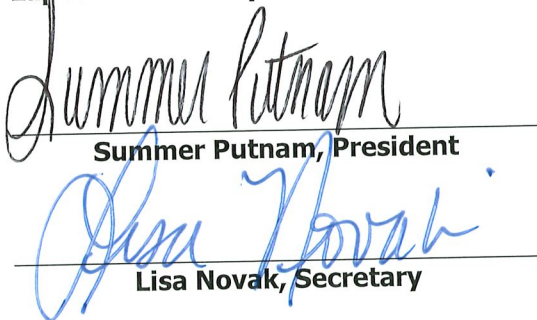 Summer Putnam
Summer Putnam, President
Lisa Novak
Lisa Novak, Secretary